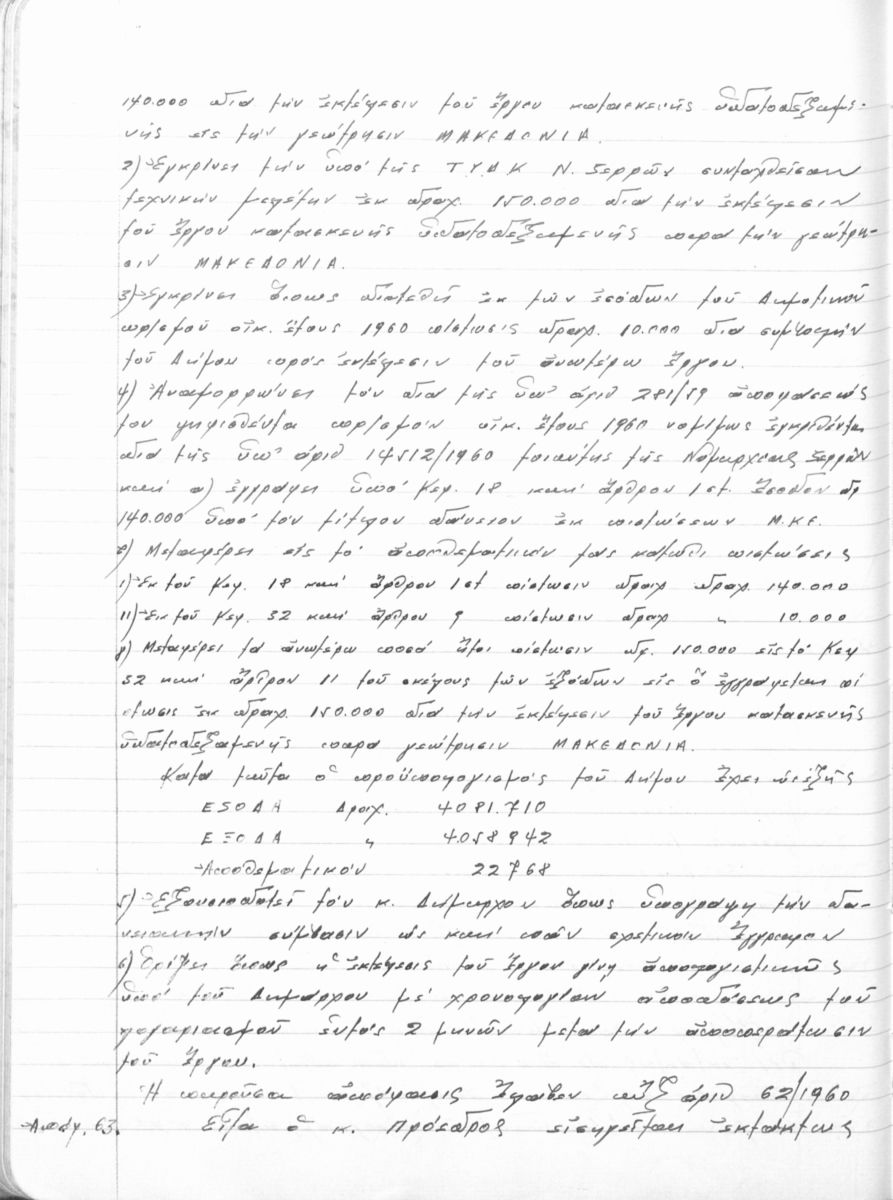 140.000 διά τήν ἐκτέλεσιν τοῦ ἔργου κατασκευῆς ὑδατοδεξαμε-
νῆς εἰς τήν γεώτρησιν ΜΑΚΕΔΟΝΙΑ.
2) Ἐγκρίνει τήν ὑπό τῆς Τ.Υ.Δ.Κ Ν. Σερρῶν συνταχθεῖσαν
τεχνικήν μελέτην ἐκ δραχ. 150.000 διά τήν ἐκτέλεσιν
τοῦ ἔργου κατασκευῆς ὑδατοδεξαμενῆς παρά τήν γεώτρη-
σιν ΜΑΚΕΔΟΝΙΑ.
3) Ἐγκρίνει ὅπως διατεθῆ ἐκ τῶν ἐσόδων τοῦ Δημοτικοῦ
πρ/σμοῦ οἰκ. ἔτους 1960 πίστωσις δραχ. 10.000 διά συμβολήν
τοῦ Δήμου πρός ἐκτέλεσιν τοῦ ἀνωτέρω ἔργου.
4) Ἀναμορφώνει τόν διά τῆς ὑπ' ἀριθ 281/59 ἀποφάσεώς
του ψηφισθέντα πρ/σμόν οἰκ. ἔτους 1960 νομίμως ἐγκριθέντα
διά τῆς ὑπ' ἀριθ 14512/1960 τοιαύτης τῆς Νομαρχίας Σερρῶν
καί α) ἐγγράφει ὑπό Κεφ. 18 καί ἄρθρον 1στ. ἔσοδον δρ
140.000 ὑπό τόν τίτλον δάνειον ἐκ πιστώσεων Μ.ΚΕ.
β) Μεταφέρει εἰς τό ἀποθεματικόν τάς κάτωθι πιστώσεις
1) Ἐκ τοῦ Κεφ. 18 καί ἄρθρου 1στ πίστωσιν δραχ δραχ. 140.000
11) Ἐκ τοῦ Κεφ. 32 καί ἄρθρου 9 πίστωσιν δραχ " 10.000
γ) Μεταφέρει τά ἀνωτέρω ποσά ἤτοι πίστωσιν δρ. 150.000 εἰς τό Κεφ
32 καί ἄρθρον 11 τοῦ σκέλους τῶν ἐξόδων εἰς ὅ ἐγγράφεται πί
στωσις ἐκ δραχ. 150.000 διά τήν ἐκτέλεσιν τοῦ ἔργου κατασκευῆς
ὑδατοδεξαμενῆς παρά γεώτρησιν ΜΑΚΕΔΟΝΙΑ.
Κατά ταῦτα ὁ προϋπολογισμός τοῦ Δήμου ἔχει ὡς ἑξῆς
ΕΣΟΔΑ Δραχ. 4081.710
ΕΞΟΔΑ " 4058942
Ἀποθεματικόν 22768
5) Ἐξουσιοδοτεῖ τόν κ. Δήμαρχον ὅπως ὑπογράψη τήν δα-
νειακήν σύμβασιν ὡς καί πᾶν σχετικόν ἔγγραφον
6) Ὁρίζει ὅπως ἡ ἐκτέλεσις τοῦ ἔργου γίνη ἀπολογιστικῶς
ὑπό τοῦ Δημάρχου μέ χρονολογίαν ἀποδόσεως τοῦ
λογαριασμοῦ ἐντός 2 μηνῶν μετά τήν ἀποπεράτωσιν
τοῦ ἔργου.
Ἡ παροῦσα ἀπόφασις ἔλαβεν αὔξ ἀριθ 62/1960
Ἀπόφ. 63. Εἶτα ὁ κ. Πρόεδρος εἰσηγεῖται ἐκτάκτως